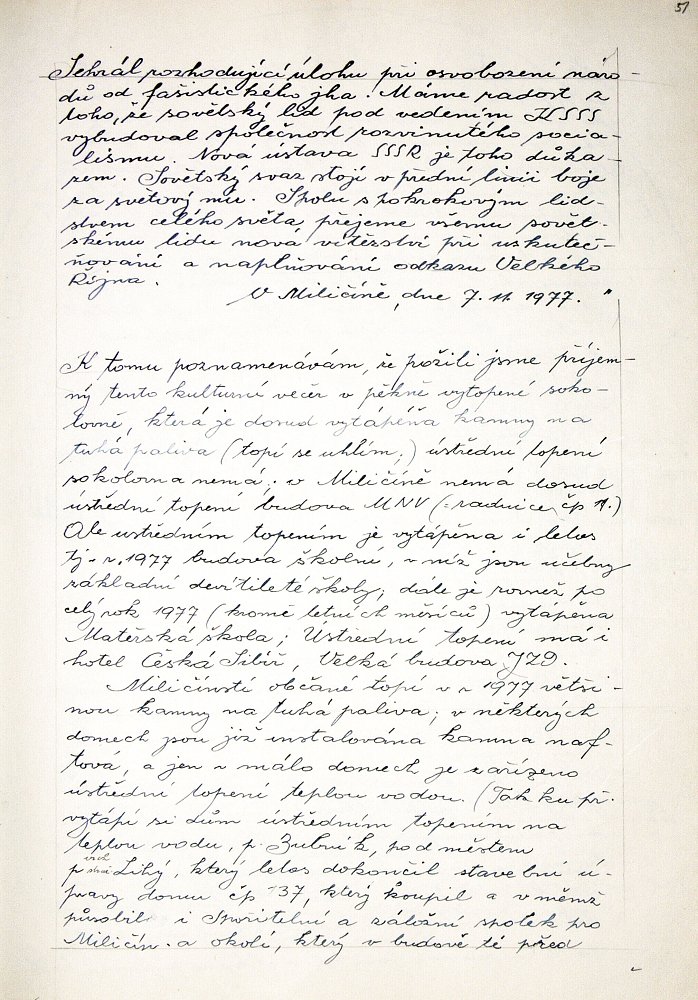 51
Sehrál rozhodující úlohu při osvobození náro-
dů od fašistického jha. Máme radost z
toho, že sovětský lid pod vedením KSSS
vybudoval společnost rozvinutého socia-
lismu. Nová ústava SSSR je toho důka-
zem. Sovětský svaz stojí v přední linii boje
za světový mír. Spolu s pokrokovým lid-
stvem celého světa přejeme všemu sovět-
skému lidu nová vítězství při uskuteč-
ňování a naplňování odkazu Velkého
Října.
V Miličíně, dne 7. 11. 1977. "
K tomu poznamenávám, že požili jsme příjem-
ný tento kulturní večer v pěkně vytopené soko-
lovně, která je dosud vytápěňa kamny na
tuhá paliva (topí se uhlím.) ústřední topení
sokolovna nemá; v Miličíně nemá dosud
ústřední topení budova MNV (: radnice čp 11.)
Ale ústředním topením je vytápěna i letos
tj. r. 1977 budova školní, v níž jsou učebny
základní devítileté školy; dále je rovněž po
celý rok 1977 (kromě letních měsíců) vytápěna
Mateřská škola; Ustřední topení má i
hotel Česká Sibiř, Velká budova JZD.
Miličínští občané topí v r 1977 větši-
nou kamny na tuhá paliva; v některých
domech jsou již instalována kamna naf-
tová, a jen v málo domech je zařízeno
ústřední topení teplou vodou. (Tak ku př.
vytápí si dům ústředním topením na
teplou vodu, p. Zubník, pod městem
p Lihý, který letos dokončil stavební ú-
pravy domu čp 137, který koupil a v němž
působil i Spořitelní a záložní spolek pro
Miličín a okolí, který v budově té před